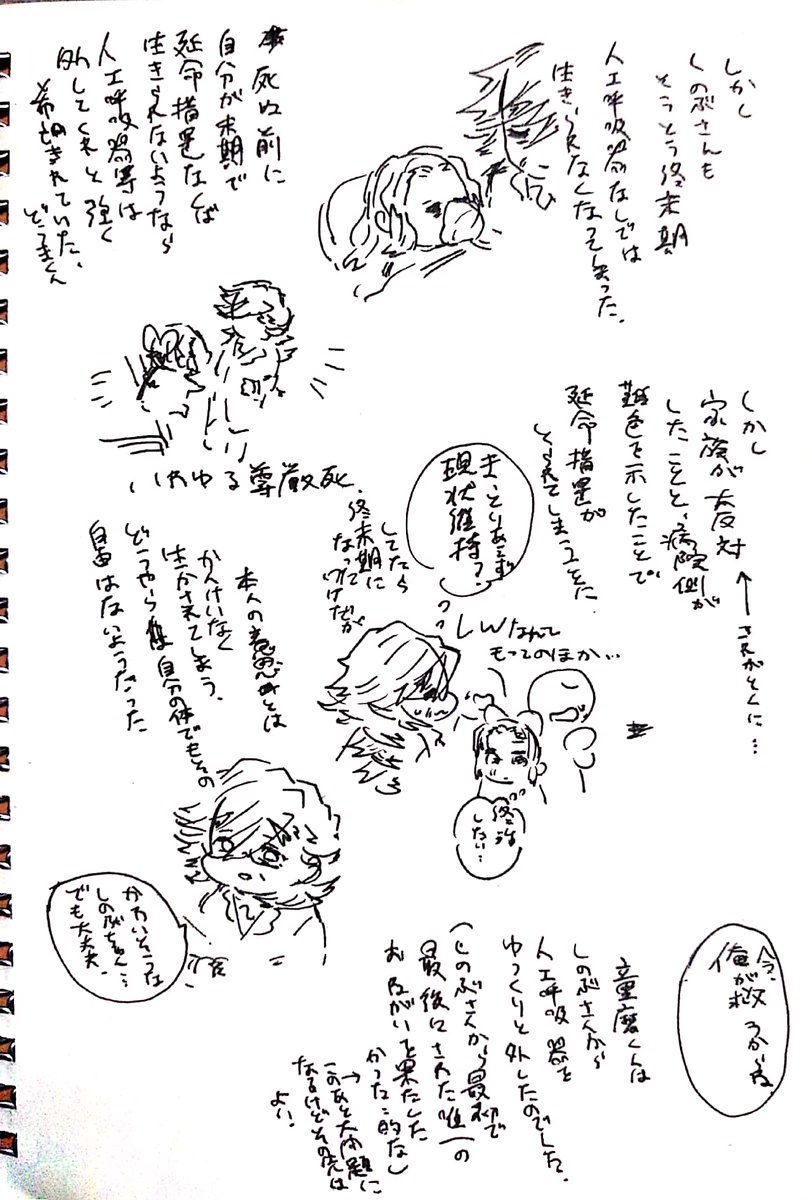 しかし
しのぶさんも
そうとう終末期
人工呼吸器なしでは
生きられなくなって
しまった。
死ぬ前に
自分が末期で
延命措置なくば
生きられないようなら
人工呼吸器等は
外してくれと強く
希望されていた、
どうまくん
いわゆる尊厳死
しかし
家族が大反対
したことと、病院側が
難色を示したことで
延命措置が
とられてしまうことに
←これがとくに…
ま、とりあえず
現状維持?
してたら
終末期に
なってた
わけだが
しWなんて
もってのほか…
終活
したい…
本人の意思とは
かんけいなく
生かされてしまう。
どうやら自分の体でもその
自由はないようだった
かわいそうな
しのぶちゃん…
でも大丈夫、
今、
俺が救うからね
童磨くんは
しのぶさんから
人工呼吸器を
ゆっくりと外したのでした。
(しのぶさんから最初で
最後にされた唯一の
おねがいを果たした
かった…的なし
→
このあと大問題に
なるけどその先は
よい。